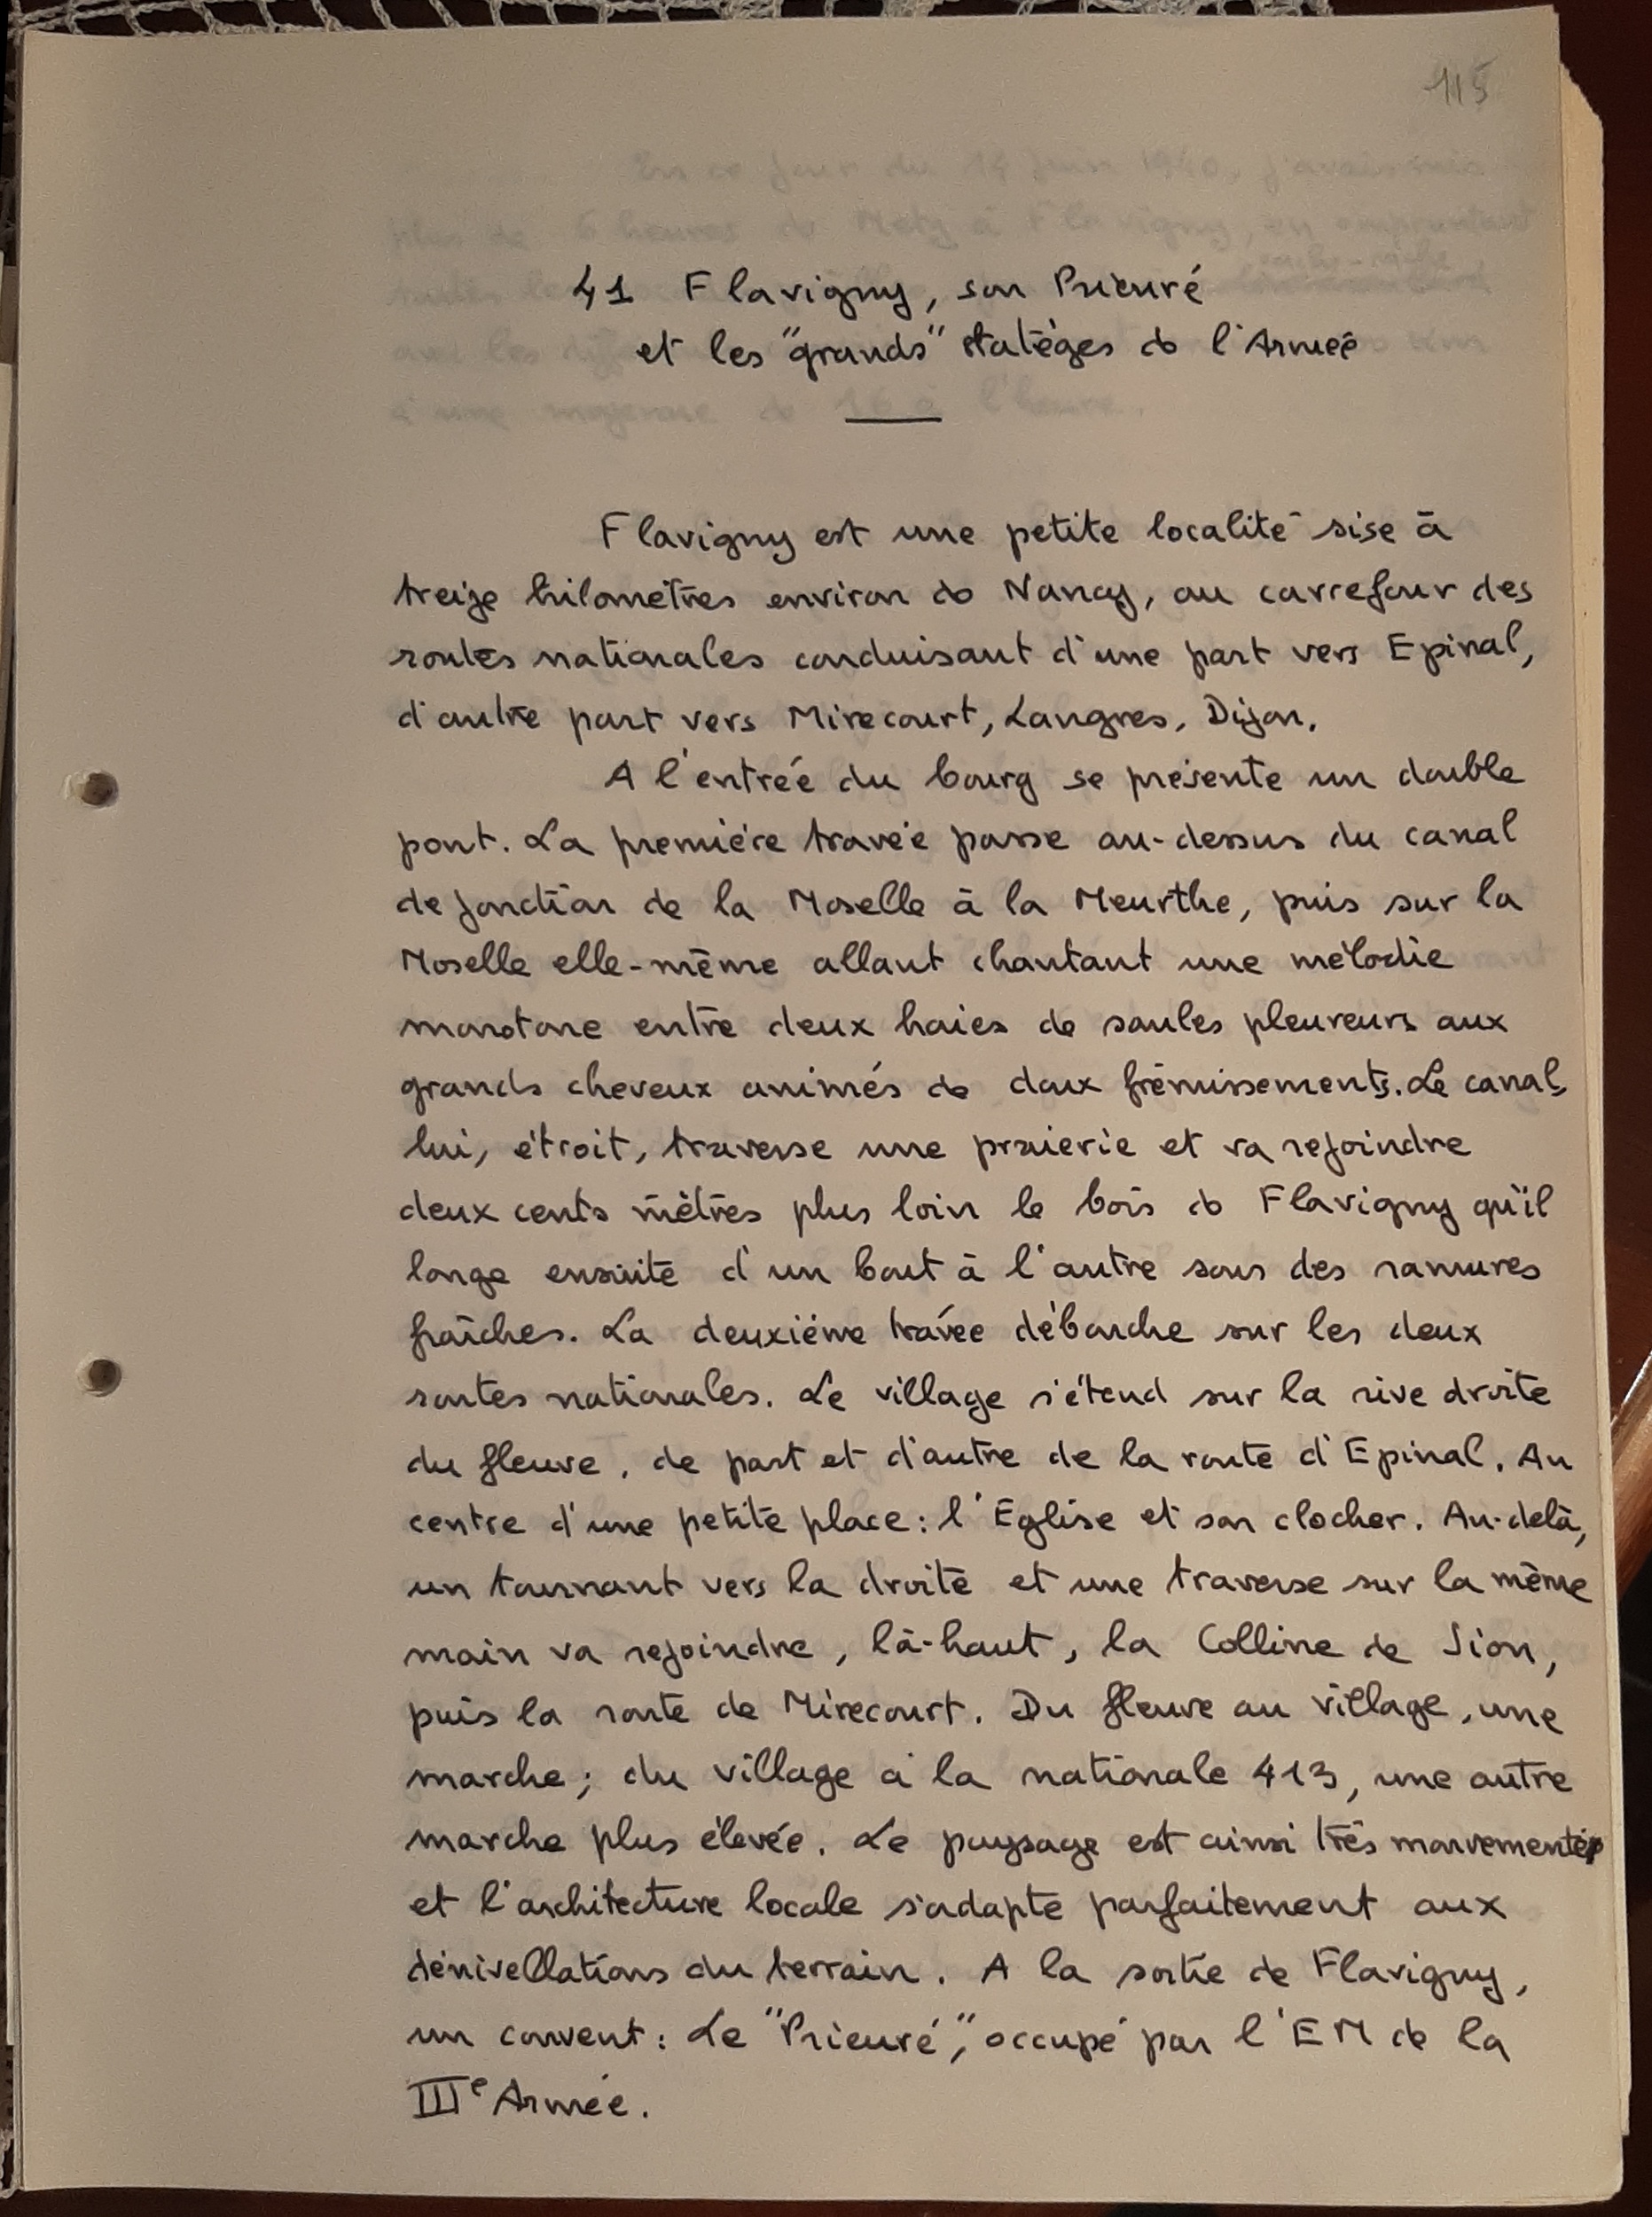 115
41 Flavigny, son Prieuré
et les "grands" statèges de l'Armée
Flavigny est une petite localité sise à
treize kilomètres environ de Nancy, au carrefour des
routes nationales conduisant d'une part vers Epinal,
d'autre part vers Mirecourt, Langres, Dijon.
A l'entrée du bourg se présente un double
pont. La première travée passe au-dessus du canal
de jonction de la Moselle à la Meurthe, puis sur la
Moselle elle-même allant chantant une mélodie
monotone entre deux haies de saules pleureurs aux
grands cheveux animés de doux frémissements. Le canal,
lui, étroit, traverse une praierie et va rejoindre
deux cents mètres plus loin le bois de Flavigny qu'il
longe ensuite d'un bout à l'autre sous des ramures
fraîches. La deuxième travée débouche sur les deux
routes nationales. Le village s'étend sur la rive droite
du fleuve, de part et d'autre de la route d'Epinal. Au
centre d'une petite place : l'Eglise et son clocher. Au-delà,
un tournant vers la droite et une traverse sur la même
main va rejoindre, là-haut, la Colline de Sion,
puis la route de Mirecourt. Du fleuve au village, une
marche ; du village à la nationale 413, une autre
marche plus élevée. Le paysage est ainsi très mouvementé
et l'architecture locale s'adapte parfaitement aux
dénivellations du terrain. A la sortie de Flavigny,
un couvent : Le "Prieuré", occupé par l'EM de la
IIIe Armée.